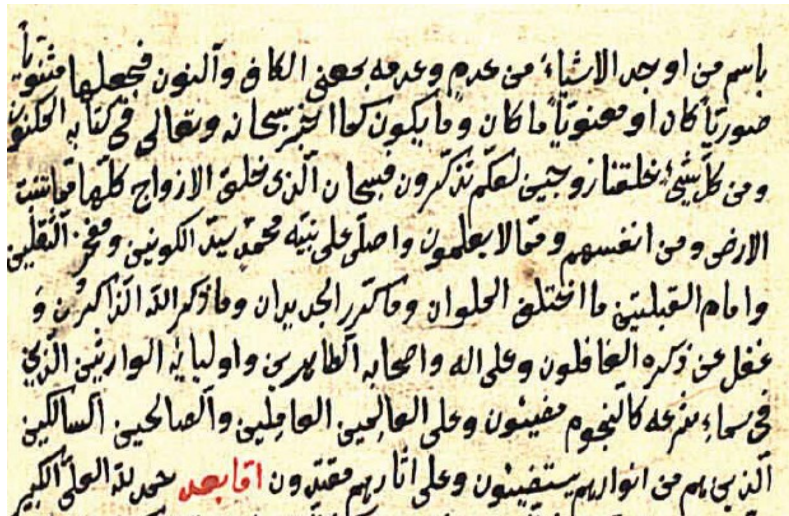 باسم من اوجد الاشياء من عدم وعدمه بمعنى الكاف والنون فجعلها مثنويّاً
صوريّاً كان او معنويّاً ما كان وما يكون كما اخبر سبحانه وتعالى فى كتابه المكنون
ومن كلّ شئ خلقنا زوجين لعلّكم تذكّرون فسبحان الّذى خلق الازواج كلّها ممّا تنبت
الارض ومن انفسهم وممّا لا يعلمون واصلّى على نبيّه محمّد سيّد الكونين ومفخر الثّقلين
وامام القبلتين ما اختلف الملوان وما تكرّر الجديدان وما ذكر اللّه الذّاكرون و
غفل عن ذكره الغافلون وعلى اله واصحابه الطّاهرين واوليائه الوارثين الّذين
فى سماء شرعه كالنّجوم مضيئون وعلى العالمين العاملين والصالحين السالكين
الّذين هم من انوارهم يستضيئون وعلى اثارهم مقتدون امّا بعد حمد للّه العلىّ الكبير